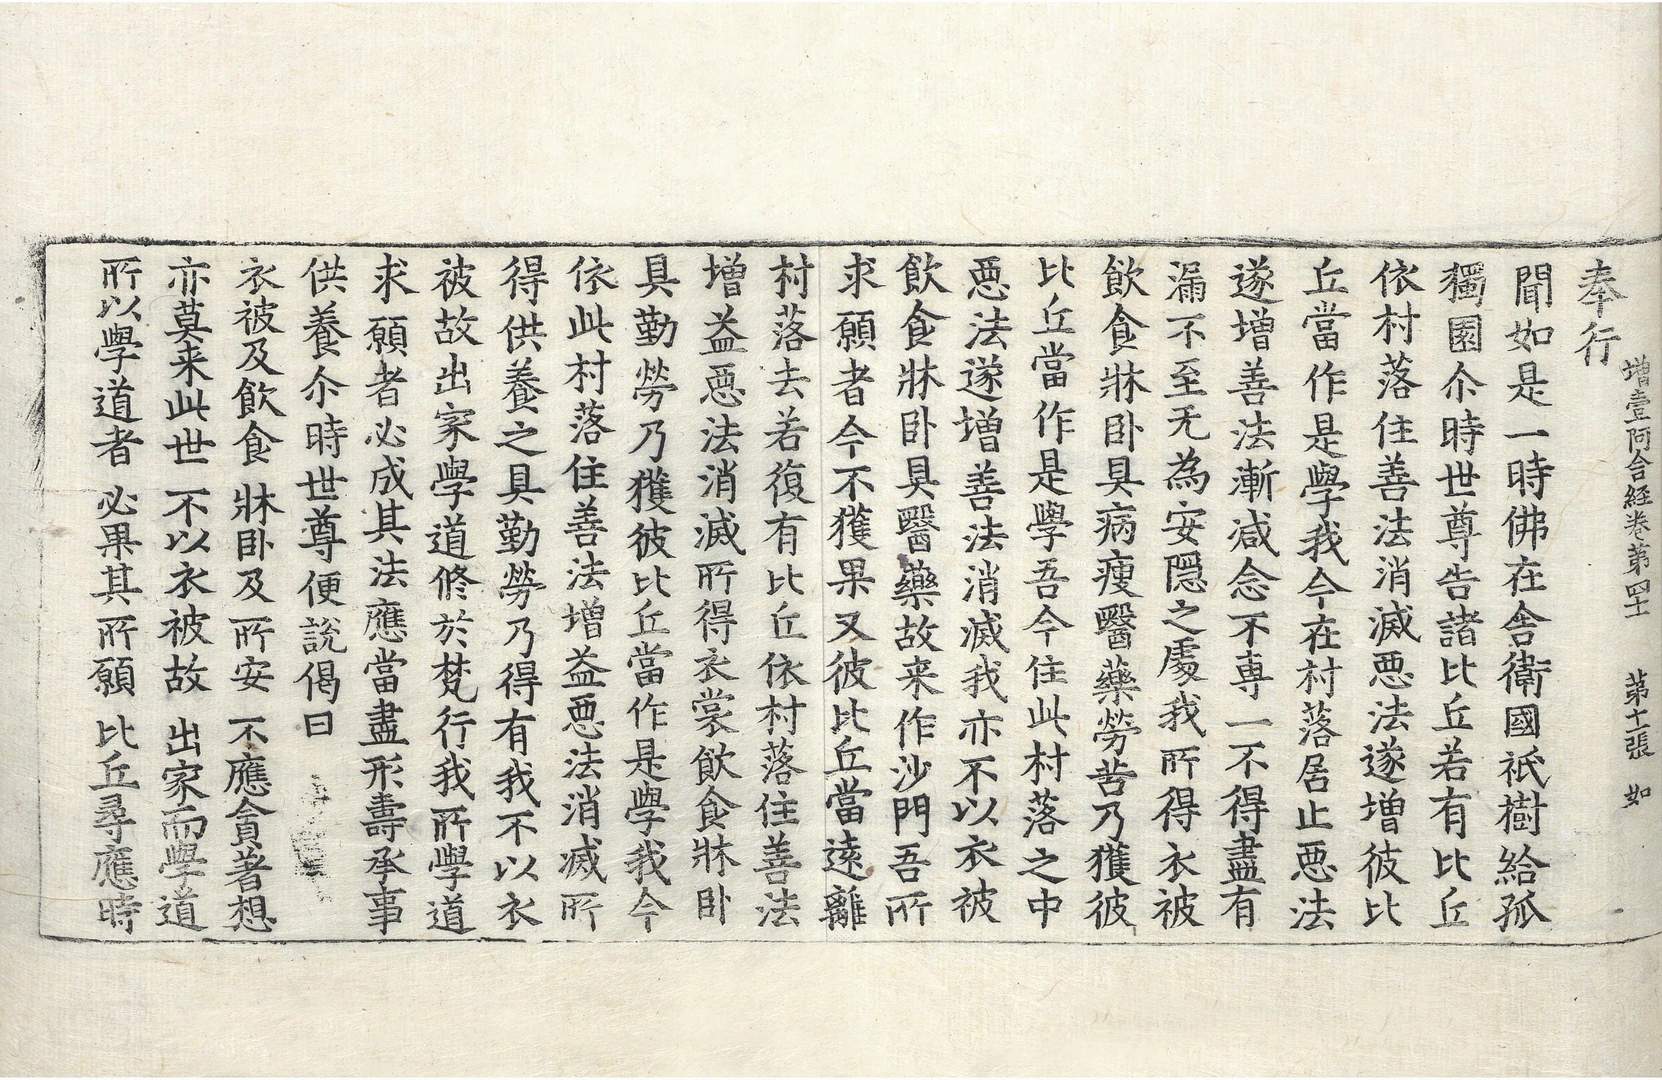 增壹阿含經卷第四十 第十一張 如
奉行
聞如是一時佛在舍衛國祇樹給孤
獨園尒時世尊告諸比丘若有比丘
依村落住善法消滅惡法遂增彼比
丘當作是學我今在村落居止惡法
遂增善法漸減念不專一不得盡有
漏不至无為安隱之處我所得衣被
飲食牀卧具病瘦醫藥勞苦乃獲彼
比丘當作是學吾今住此村落之中
惡法遂增善法消滅我亦不以衣被
飲食牀卧具醫藥故来作沙門吾所
求願者今不獲果又彼比丘當遠離
村落去若復有比丘依村落住善法
增益惡法消滅所得衣裳飲食牀卧
具勤勞乃獲彼比丘當作是學我今
依此村落住善法增益惡法消滅所
得供養之具勤勞乃得有我不以衣
被故出家學道修於梵行我所學道
求願者必成其法應當盡形壽承事
供養尒時世尊便說偈曰
衣被及飲食 牀卧及所安 不應貪著想
亦莫来此世 不以衣被故 出家而學道
所以學道者 必果其所願 比丘尋應時